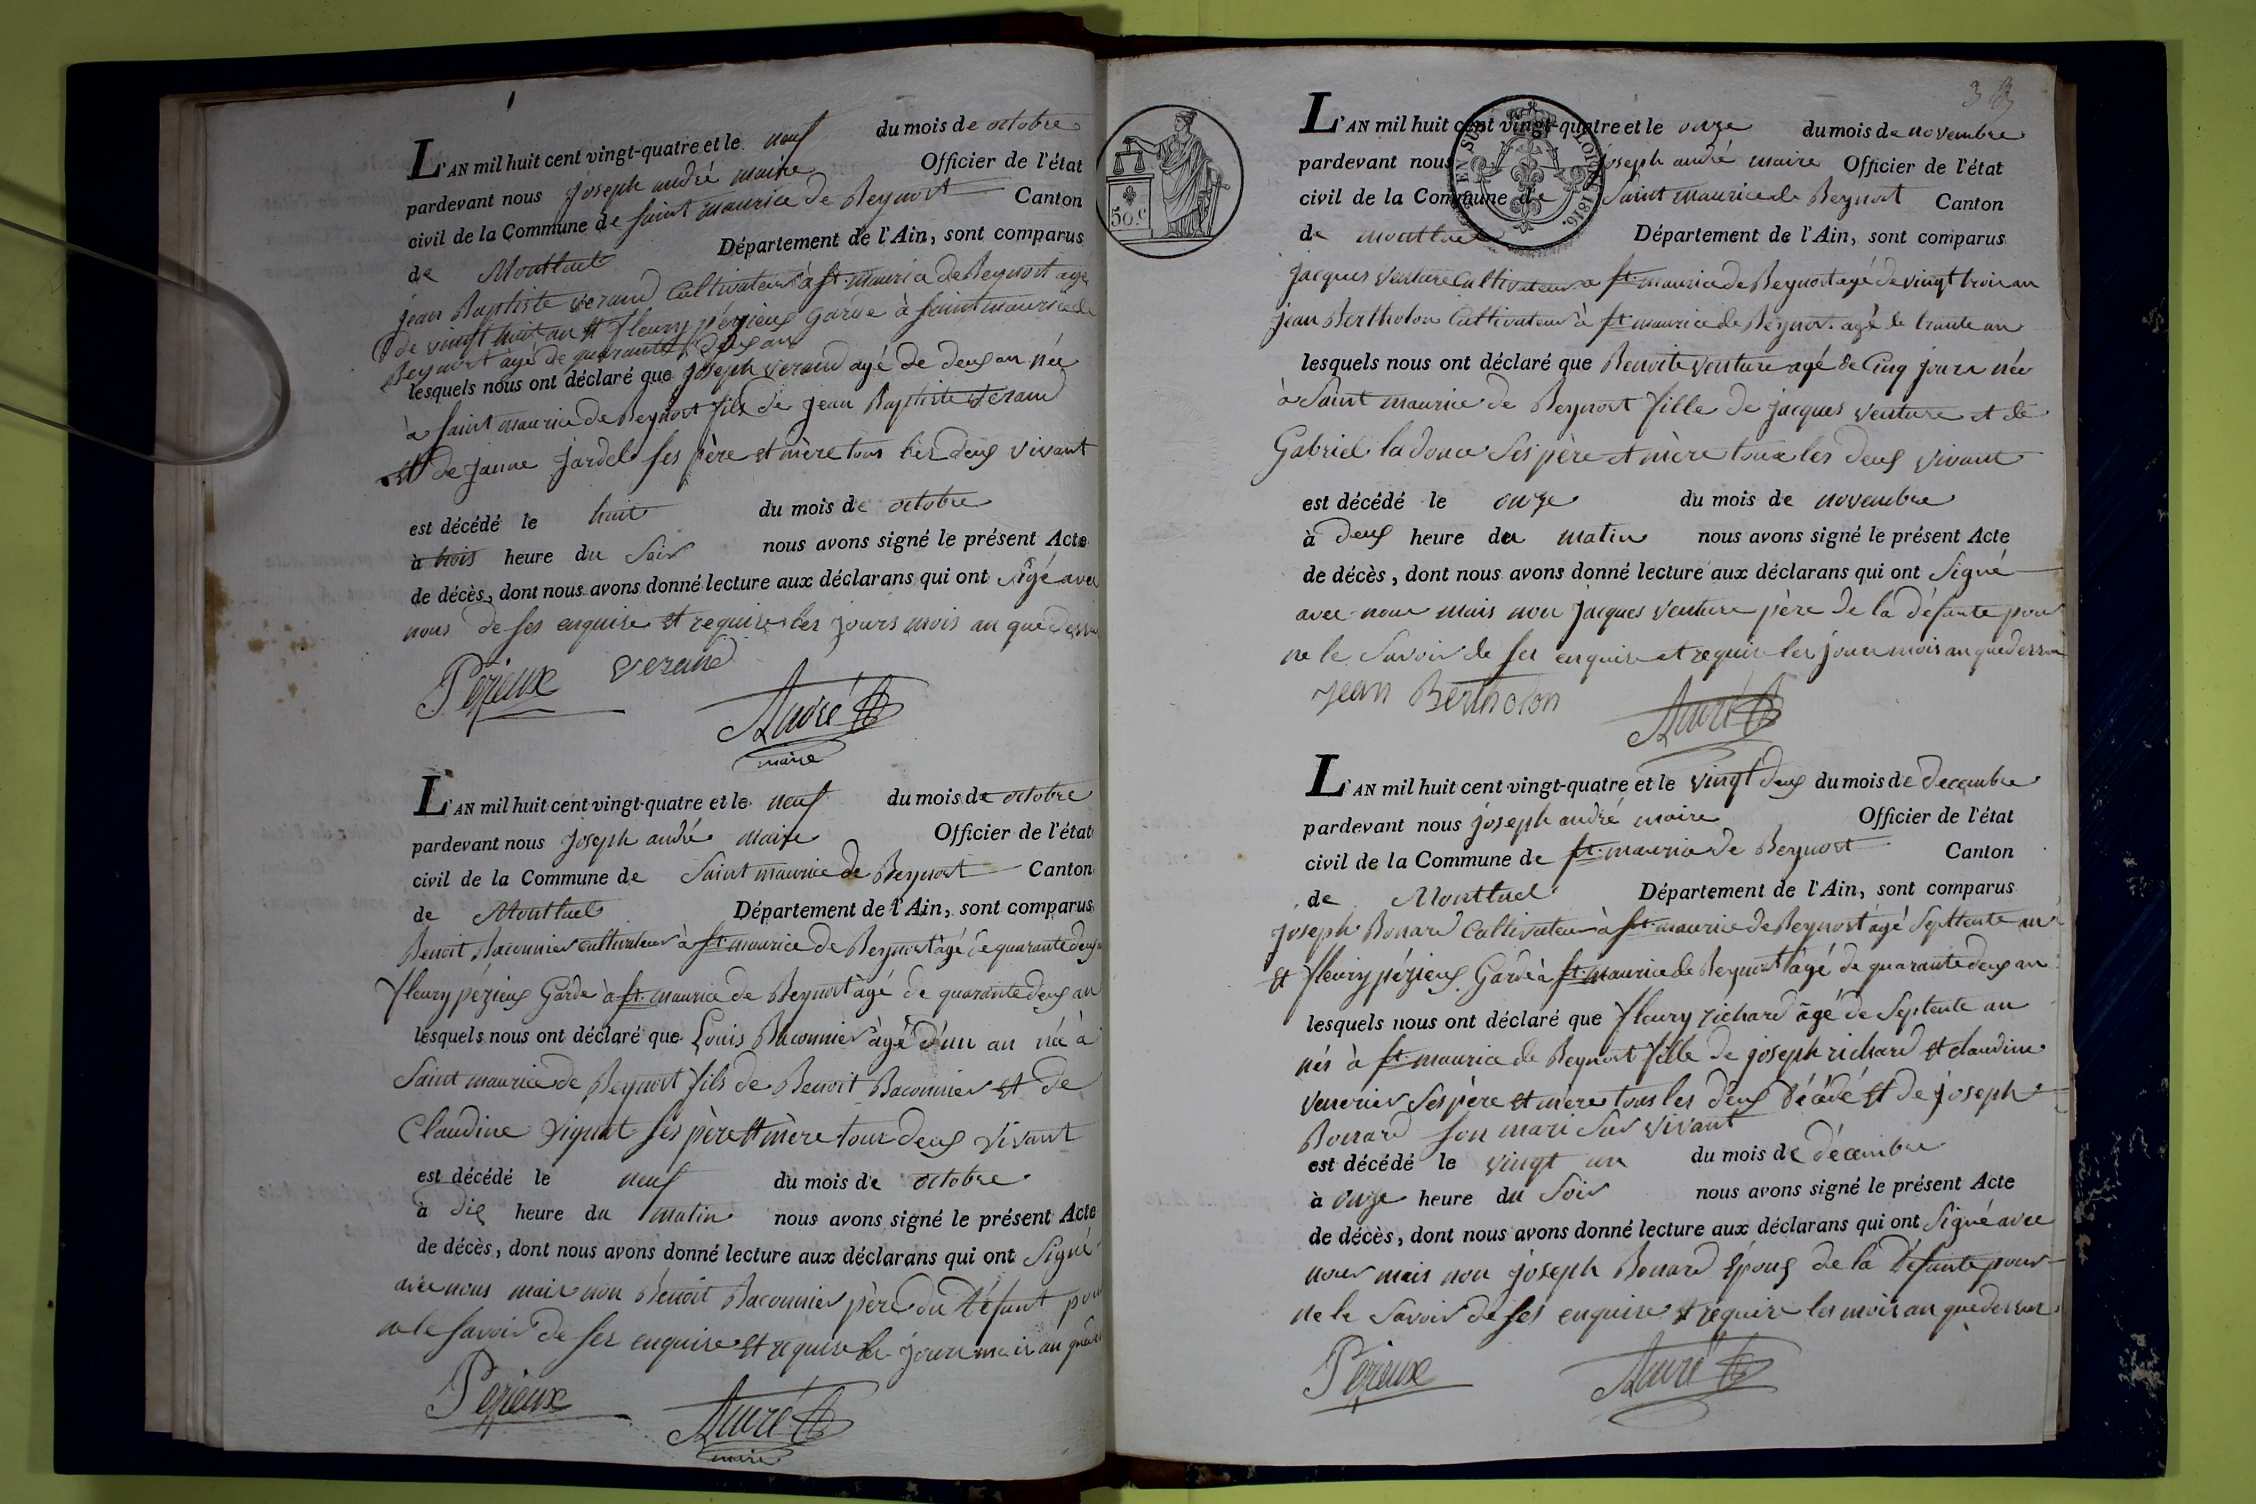 L'AN mil huit cent vingt-quatre et le neuf du mois de octobre
pardevant nous joseph andré maire Officier de l'état
civil de la Commune de saint maurice de Beynost Canton
de Montluel Département de l'Ain, sont comparus
jean Baptiste veraud Cultivateur à st maurice de Beynost agé
de vingt huit an et fleury pézieux Garde à saint maurice de
Beynost agé de quarante deux an
lesquels nous ont déclaré que joseph veraud agé de deux an née
a saint maurice de Beynost fils de jean Baptiste veraud
et de janne jardel ses père et mère tous les deux vivant
est décédé le huit du mois de octobre
à trois heure du soir nous avons signé le présent Acte
de décès, dont nous avons donné lecture aux déclarans qui ont sigé avec
nous de ses enquise et requise les jours mois an que dessus
Pezieux veraud
André
maire
L'AN mil huit cent vingt-quatre et le neuf du mois de octobre
pardevant nous joseph andré maire Officier de l'état
civil de la Commune de Saint maurice de Beynost Canton
de Montluel Département de l'Ain, sont comparus
Benoit Baconnier cultivateur à st maurice de Beynost agé de quarante deux
fleury pézieux Garde à st maurice de Beynost agé de quarante deux an
lesquels nous ont déclaré que Louis Baconnier agé d'un an née à
Saint maurice de Beynost fils de Benoit Baconnier et de
Claudine ses père et mère tour deux vivant
est décédé le neuf du mois de octobre
à dix heure du matin nous avons signé le présent Acte
de décès, dont nous avons donné lecture aux déclarans qui ont Signé
avec nous mais non Benoit Baconnier père du Défunt pour
ne le savoir de ses enquise et requise les jour mois an que
Pezieux
André
maire
38
50.c
EN SUS
LOI DE 1816.
L'AN mil huit cent vingt-quatre et le onze du mois de novembre
pardevant nous joseph andré maire Officier de l'état
civil de la Commune de Saint maurice de Beynost Canton
de montluel Département de l'Ain, sont comparus
jacques venture Cultivateur a st maurice de Beynost agé de vingt trois an
jean Bertholon Cultivateur à st maurice de Beynos agé de trante an
lesquels nous ont déclaré que Benoite venture agé de Cinq jours née
à Saint maurice de Beynost fille de jacques venture et de
Gabriel ladouce Ses père et mère tous les deux vivant
est décédé le onze du mois de novembre
à deux heure du matin nous avons signé le présent Acte
de décès, dont nous avons donné lecture aux déclarans qui ont Signé
avec nous mais non jacques venture père de la défunte pour
ne le Savoir de ses enquise et requise les jour mois an que dessus
Jean Bertholon
André
L'AN mil huit cent vingt-quatre et le vingt deux du mois de Decembre
pardevant nous joseph andré maire Officier de l'état
civil de la Commune de st maurice de Beynost Canton
de Montluel Département de l'Ain, sont comparus
joseph Bonard Cultivateur à st maurice de Beynost agé Septtente an
et fleury pézieux Garde à st maurice de Beynost agé de quarante deux an
lesquels nous ont déclaré que fleury richard agé de Septente an
nés à st maurice de Beynost fille de joseph richard et claudine
Ses père et mère tous les deux décédé et de joseph
Bonard son mari Sur vivant
est décédé le vingt un du mois de décembre
à onze heure du Soir nous avons signé le présent Acte
de décès, dont nous avons donné lecture aux déclarans qui ont Signé avec
nous mais non joseph Bonard Epoux de la Défunte pour
ne le Savoir de ses enquise et requise les mois an que dessus
Pezieux
André